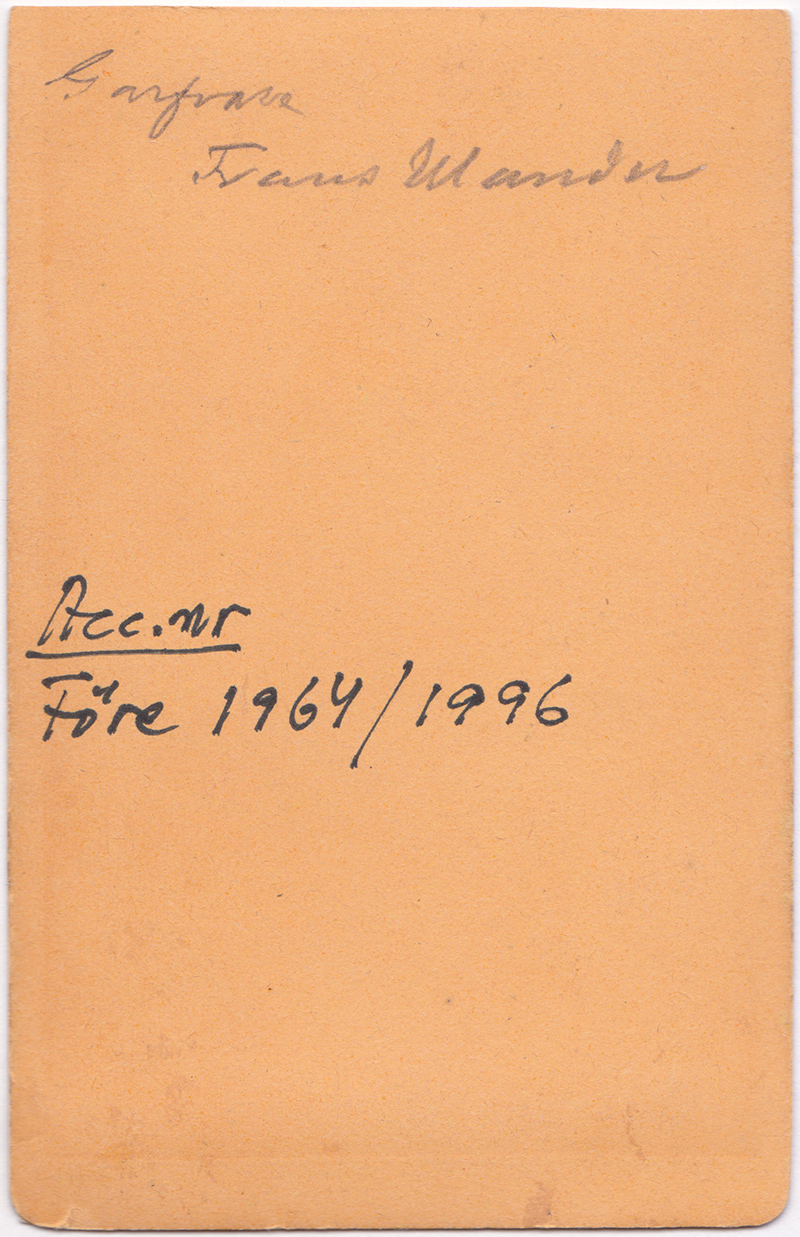 Garfvare
Frans Ulander
Acc.nr
Före 1964/1996